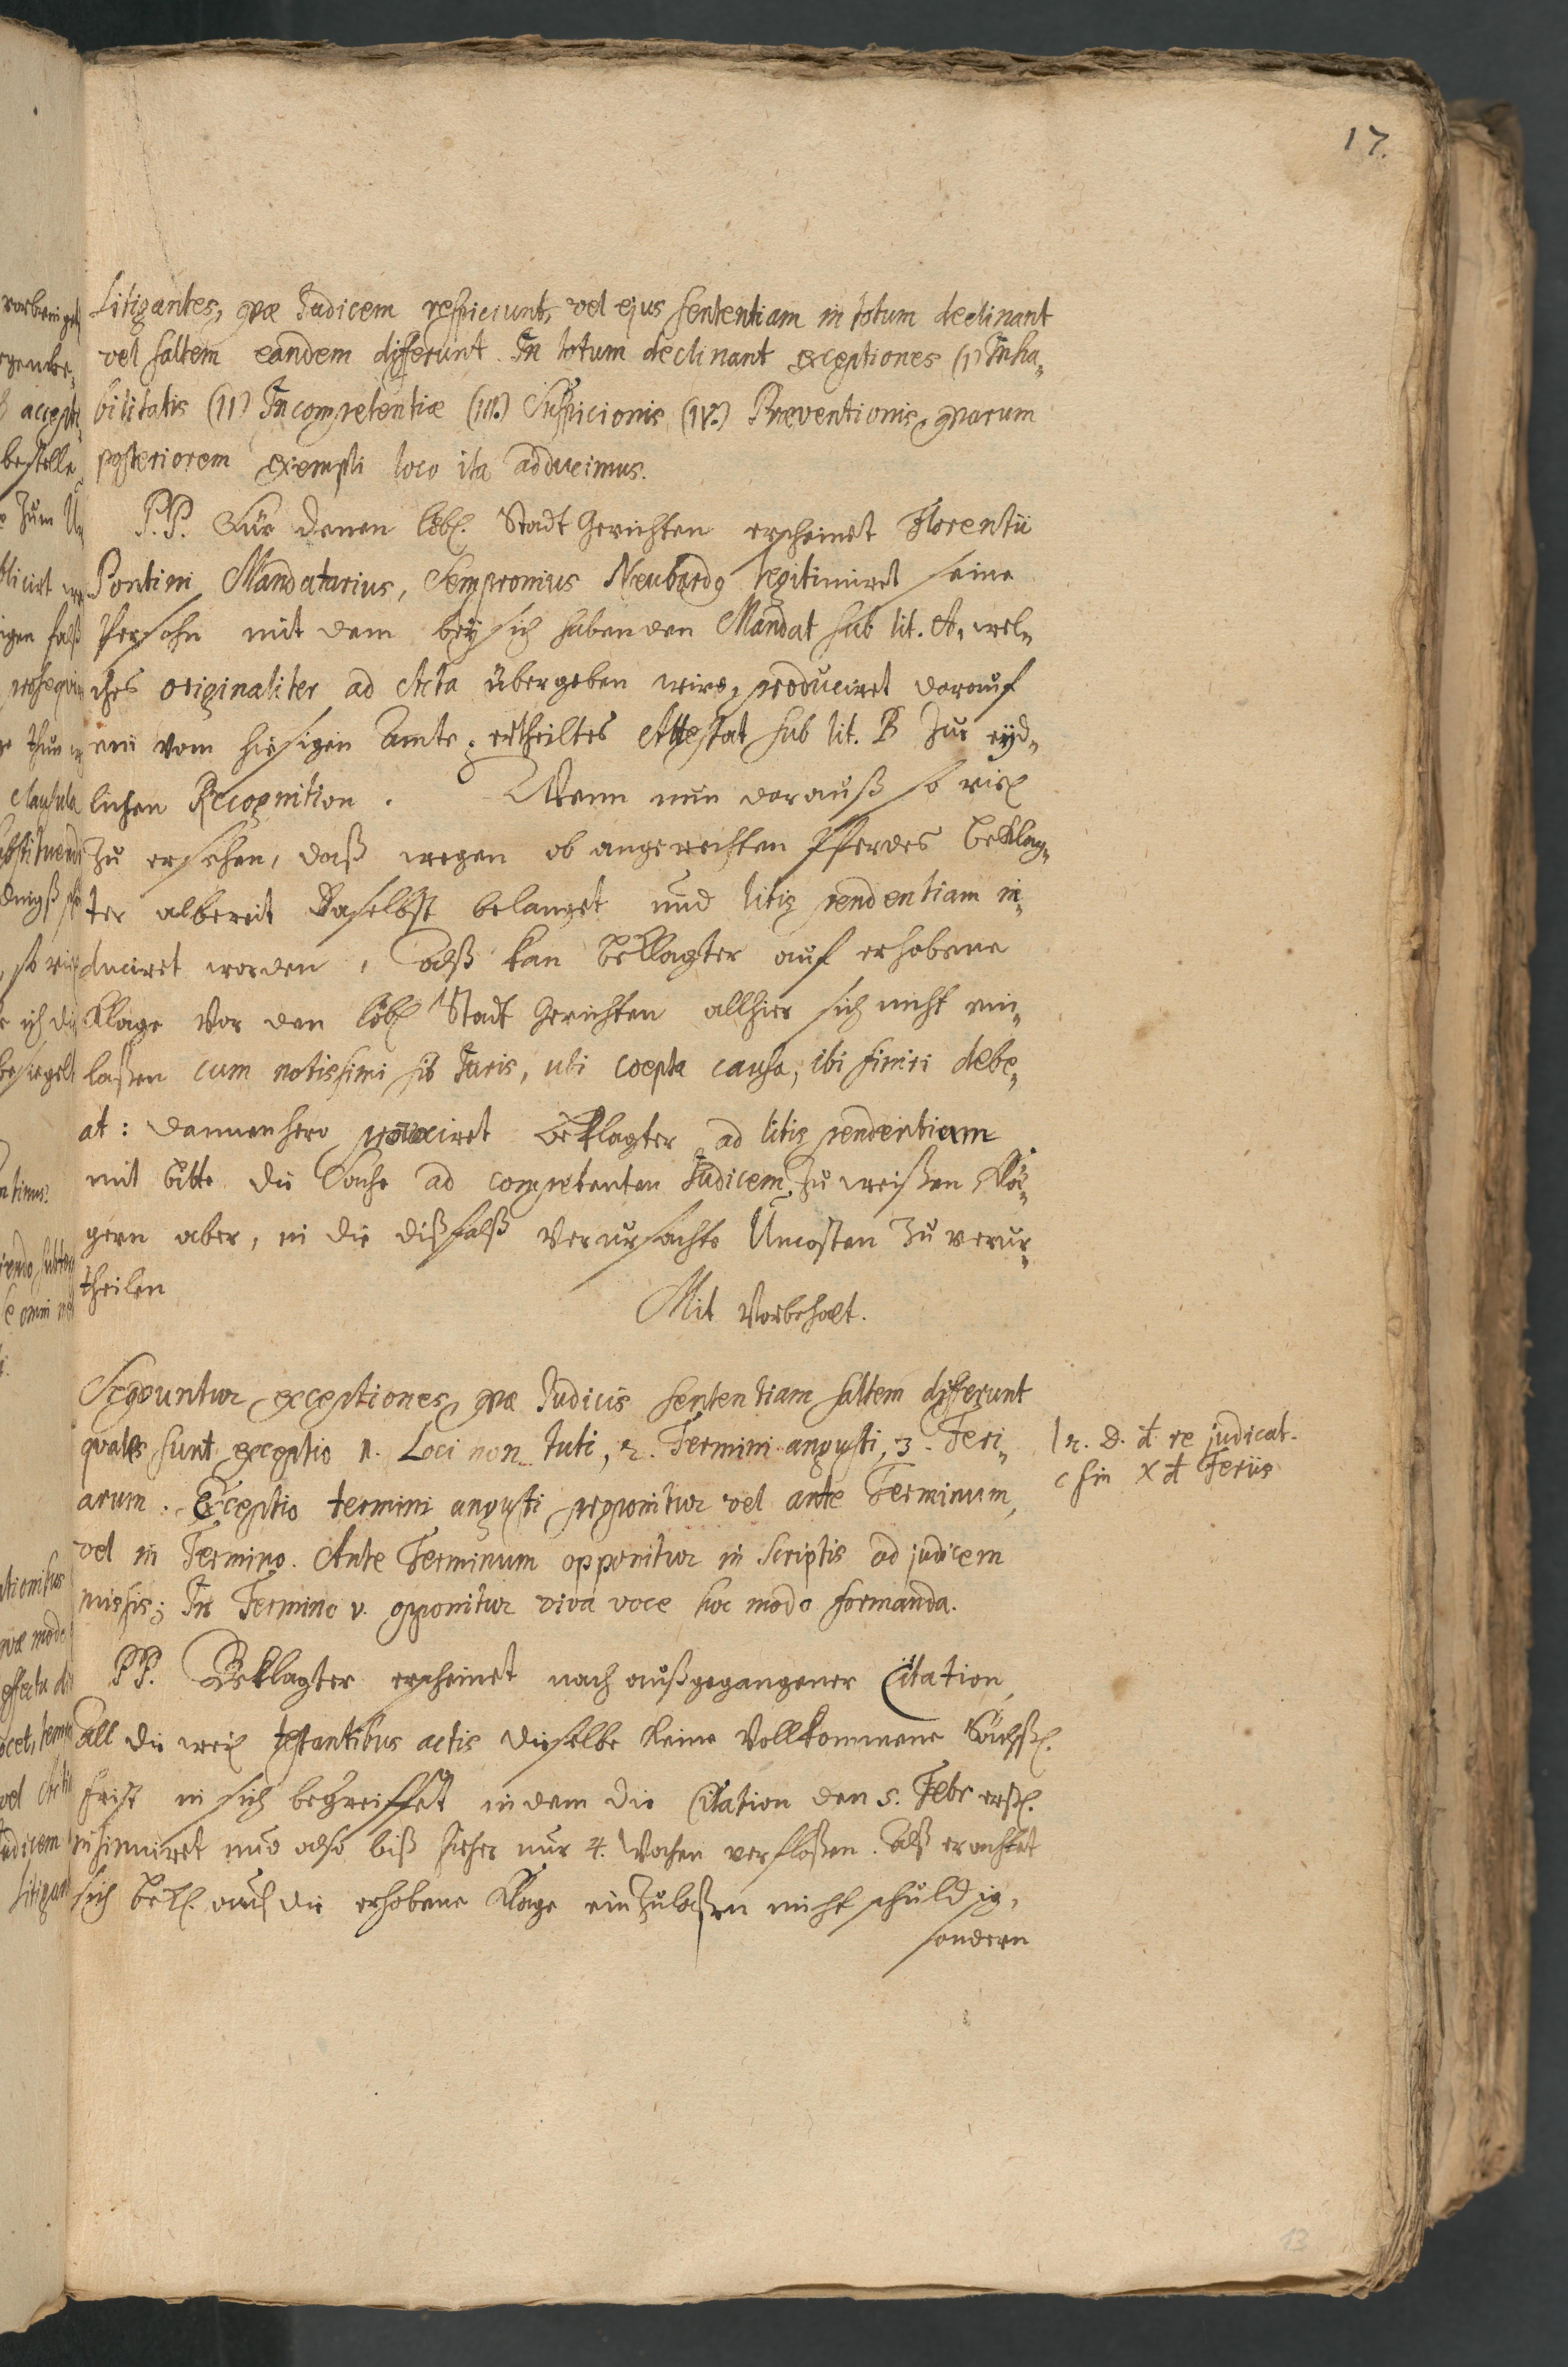 17.
Litigantes, qvæ Judicem respiciunt, vel ejus sententiam in totum declinant
vel saltem eandem differunt. In totum declinant exceptiones (1) Inha-
bilitatis (II) Incompetentiæ (III.) Suspicionis (IV.) Præventionis, qvarum
posteriorem exempli loco ita adducimus.
P.P. Für denen löbl. Stadt Gerichten erscheinet Florentii
Pontini Mandatarius, Sempronius Neubardo legitimiret seine
Persohn mit dem beÿ sich habenden Mandat sub lit. A. wel-
ches originaliter ad Acta übergeben wird, produciret darauf
ein vom hiesigen Amte ertheiltes Attestat sub lit. B zur eÿd-
lichen Recognition. Wenn nun darauß so viel
zu ersehen, daß wegen ob angereichten Pferdes Beklag-
ter albereit daselbst belanget und litis pendentiam in-
duciret worden, Alß kan Beklagter auf erhobene
Klage vor den löbl Stadt Gerichten allhier sich nicht ein-
laßen cum notissimi sit Juris, ubi coepta causa, ibi finiri debe-
at: dannenhero provociret Beklagter ad litis pendentiam
mit bitte die Sache ad competenten Judicem zu weißen Klä-
gern aber, in die dißfalß verursachte Uncosten zu verur-
theilen
Mit Vorbehalt.
Seqvuntur exceptiones, qvæ Judicis sententiam saltem differunt
qvales sunt exceptio 1. Loci non tuti, 2. Termini angusti, 3. Feri-
arum. Exceptio termini angusti proponitur vel ante Terminum,
vel in Termino. Ante Terminum opponitur in Scriptis ad judicem
missis; In Termino v. opponitur viva voce hoc modo formanda.
l 2. D. d re judicat.
c fin X d Feriis
PP. Beklagter erscheinet nach außgegangener Citation,
All die weil testantibus actis dieselbe keine Vollkommene Sächß.
frist in sich begreiffet indem die Citation den 5. Febr erst.
insinuiret und also biß hieher nur 4. Wochen verfloßen. Alß erachtet
sich Bekl. auf die erhobene Klage einzulaßen nicht schuldig,
sondern
13